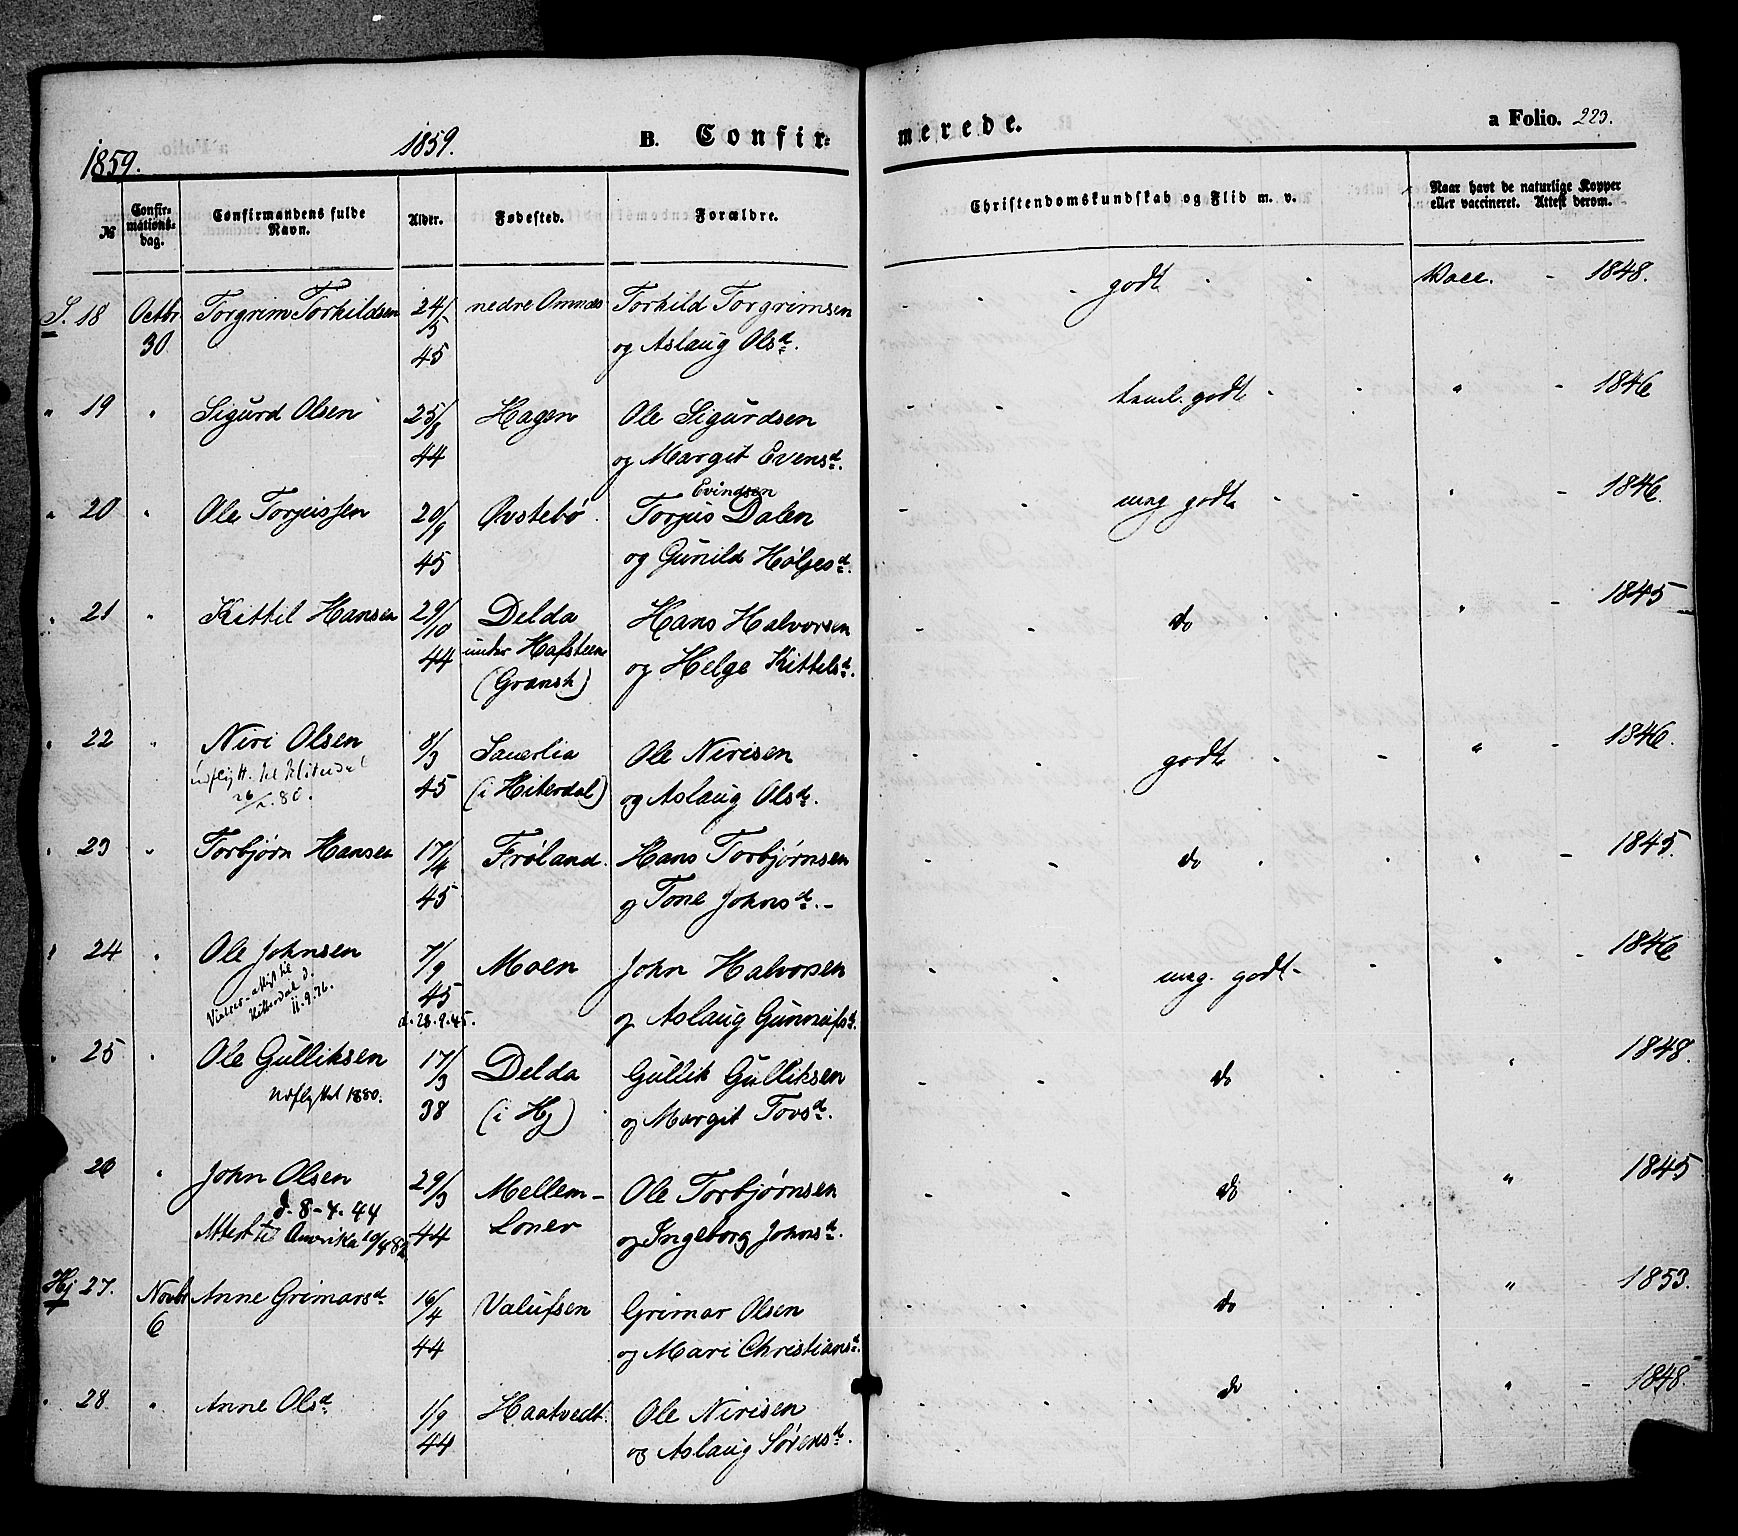 1859.
1859.
B. Confir-
merede.
a Folio. 223.
№
Confir-
mations-
dag.
Confirmandens fulde
Navn.
Alder.
Fødested.
Forældre.
Christendomskundskab og Flid m. v.
Naar havt de naturlige Kopper
eller vaccineret. Attest derom.
S. 18 Octbr Torgrim Torkildsen 24/ nedre Omnæs Torkild Torgrimsen godt Vacc. - 1848.
30 5 og Aslaug Olsd.
45
" 19 " Sigurd Olsen 25/ Hagen Ole Sigurdsen teml. godt " - 1846
8
44 og Margit Evensd.
Evindsen
" 20 " Ole Torjussen 20/ Øvstebø Torjus Dalen meg godt " - 1846.
9
45 og Gunild Holjesd.
" 21 " Kittil Hansen 29/ Delda Hans Halvorsen do " - 1845
10 under Hafsteen
44 (Gransh) og Helge Kittelsd.
" 22 " Niri Olsen 8/ Sauerlia Ole Nirisen godt " - 1846.
udflytt. til Hiterdal 3
26/ .80. 45 (i Hiterdal) og Aslaug Olsd.
" 23 " Torbjørn Hansen 17/ Frøland. Hans Torbjørnsen do " - 1845.
4
45 og Tone Johnsd. -
" 24 " Ole Johnsen 7/ Moen John Halvorsen meg. godt - " - 1846
9
attest til 45
Hitterdal d.
11.9.76. d. 28.9.45. og Aslaug Gunneifsd.
" 25 " Ole Gulliksen 17/ Delda Gullik Gulliksen do " 1848.
3
udflyttet 1880. 38 (i Hj) og Margit Tovsd.
26 " John Olsen 29/ Mellem- Ole Torbjørnsen do " 1845
3 Loner
d. 8-4.44
Attest til Amerika 19/4 82 44 og Ingeborg Johnsd.
Hj 27. Novbr Anne Grimarsd 16/ Valufsen Grimar Olsen do " 1853.
6 4
44 og Mari Christiansd.
" 28 " Anne Olsd 1/ Haatvedt. Ole Nirisen do " - 1848.
9
44 og Aslaug Sørensd.